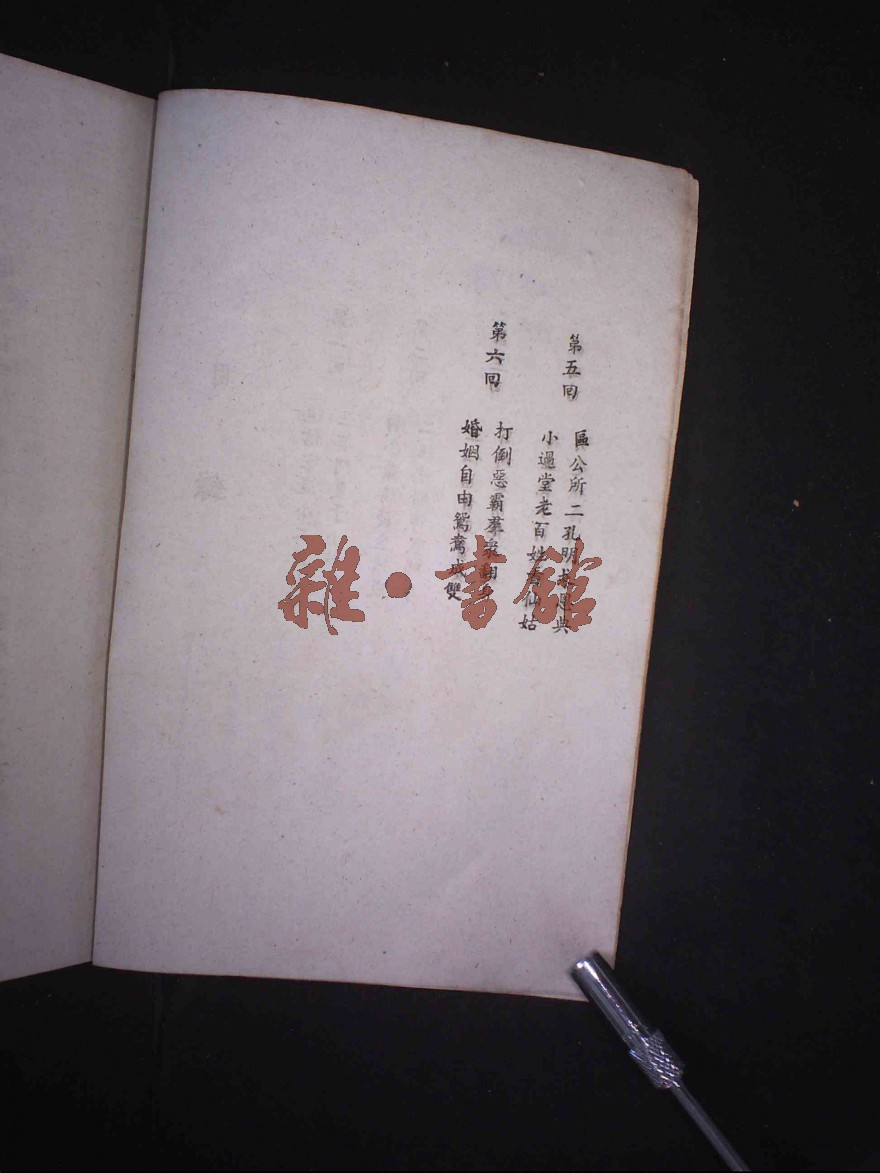 第五回
區公所二孔明求恩典
小過堂老百姓看仙姑
第六回
打倒惡霸羣衆翻身
婚姻自由鴛鴦成雙
雜·書館